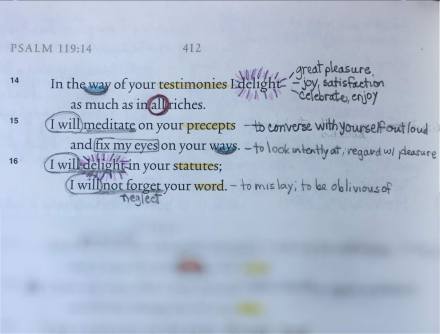 PSALM 119:14 412
great pleasure,
14 In the way of your testimonies I delight - joy, satisfaction
celebrate, enjoy
as much as in all riches.
15 I will meditate on your precepts - to converse with yourself out loud
and fix my eyes on your ways. - to look intently at, regard w/ pleasure
16 I will delight in your statutes;
I will not forget your word. - to mislay; to be oblivious of
neglect